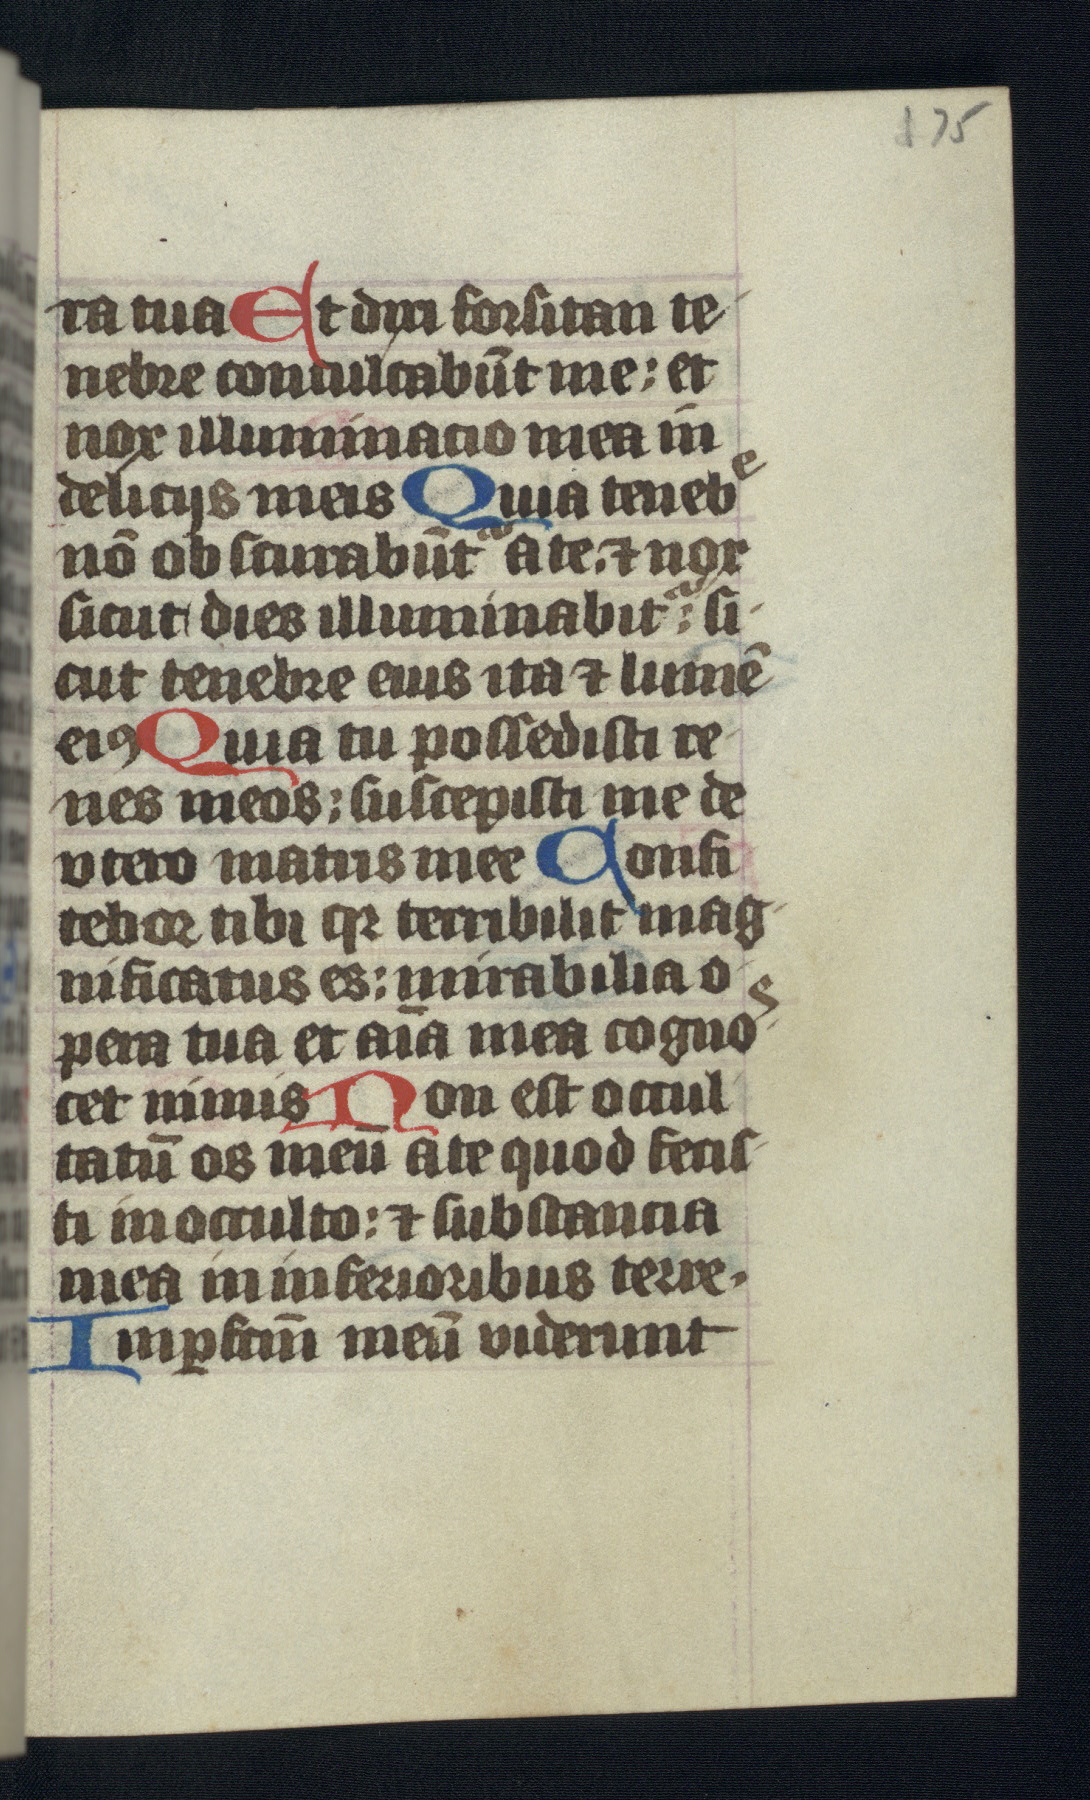 175
ra tua Et dixi forsitan te-
nebre conculcabūt me: et
nox illuminacio mea in
delicijs meis Quia tenebᵉ
nō obscurabūtᵃ a te. ⁊ nox
sicut dies illuminabitᵃ: si-
cut tenebre eius ita ⁊ lumē
eiꝰ Quia tu possedisti re-
nes meos: suscepisti me de
vtero matris mee Confi
tebor tibi qꝛ terribilit mag-
nificatus es: mirabilia o-
pera tua et aīa mea cognoˢ-
cet nimis Non est occul
tatū os meū a te quod fecis-
ti in occulto: ⁊ substancia
mea in inferioribus terre.
Inꝑfcm̄ meū viderunt